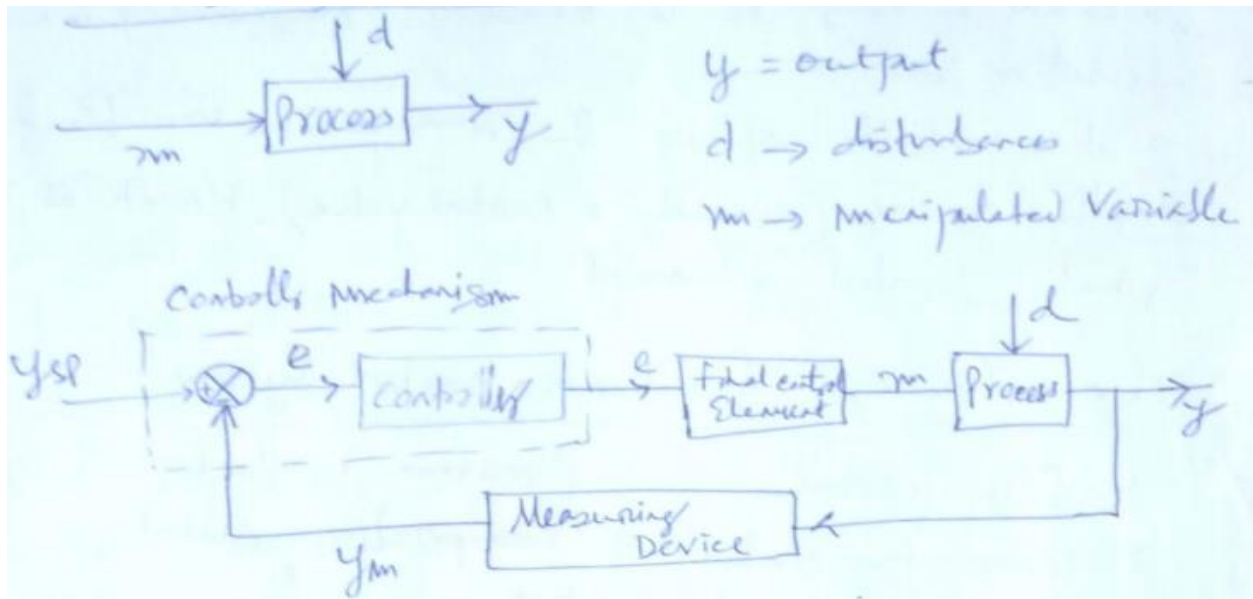 d
Process
m
y
y = output
d → disturbances
m → manipulated Variable
Controller mechanism
ysp
e
Controller
c
Final control
Element
m
Process
d
y
Measuring
Device
ym